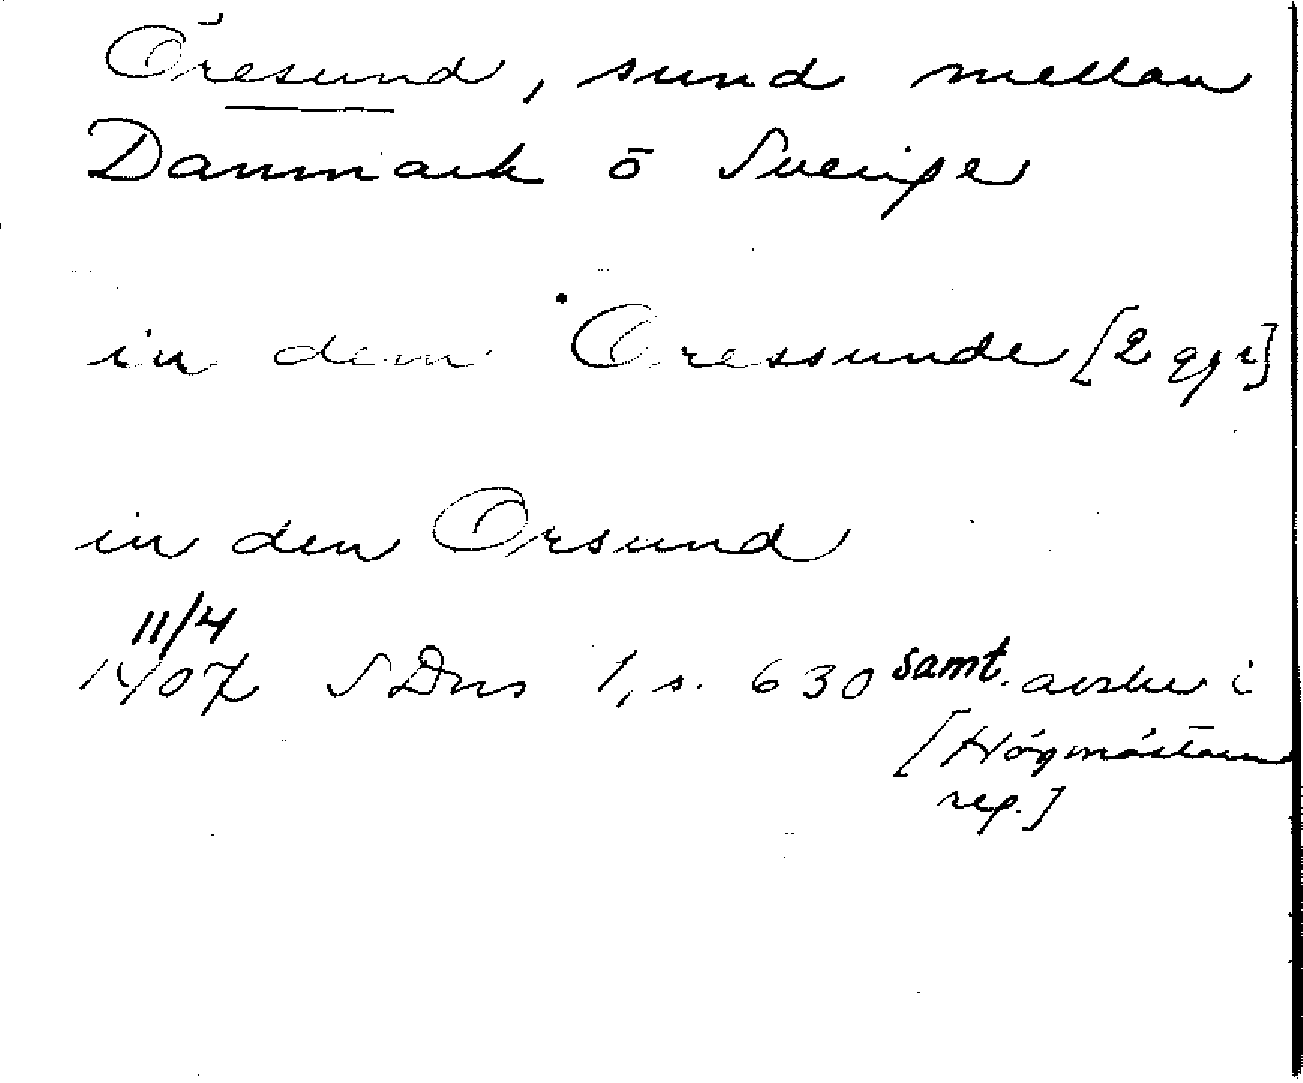 Öresund, sund mellan
Danmark o Sverige
in dem Oressunde [2 ggr]
in den Orsund
11/4
1407 SDns 1, s. 630 samt. avskr i
[Högmästarens
reg.]